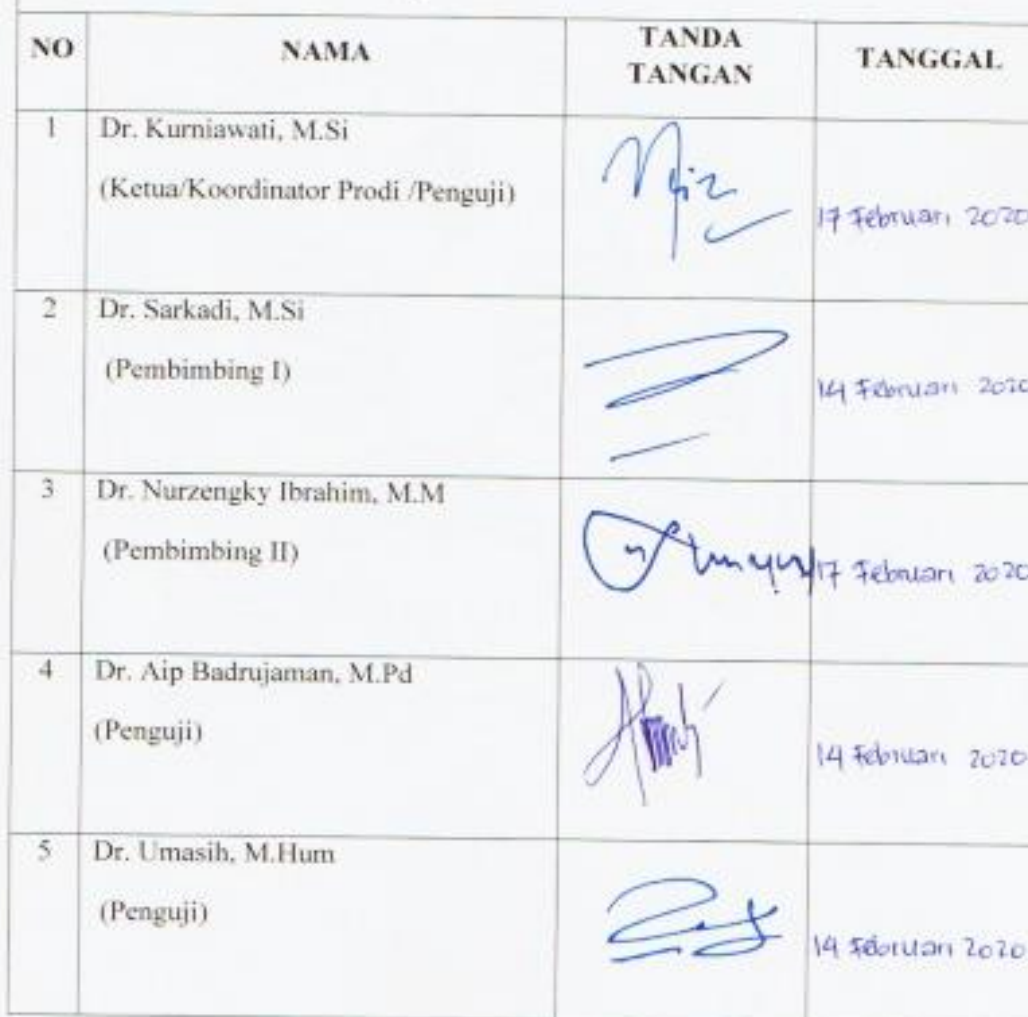 NO NAMA TANDA TANGAN TANGGAL
1 Dr. Kurniawati, M.Si
(Ketua/Koordinator Prodi /Penguji)
17 Februari 2020
2 Dr. Sarkadi, M.Si
(Pembimbing I)
14 Februari 2020
3 Dr. Nurzengky Ibrahim, M.M
(Pembimbing II)
17 Februari 2020
4 Dr. Aip Badrujaman, M.Pd
(Penguji)
14 Februari 2020
5 Dr. Umasih, M.Hum
(Penguji)
14 Februari 2020